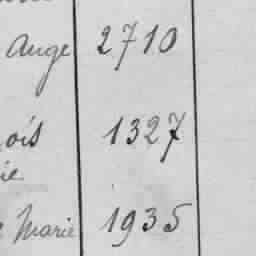 Ange 2710
ois 1327
ie
Marie 1935